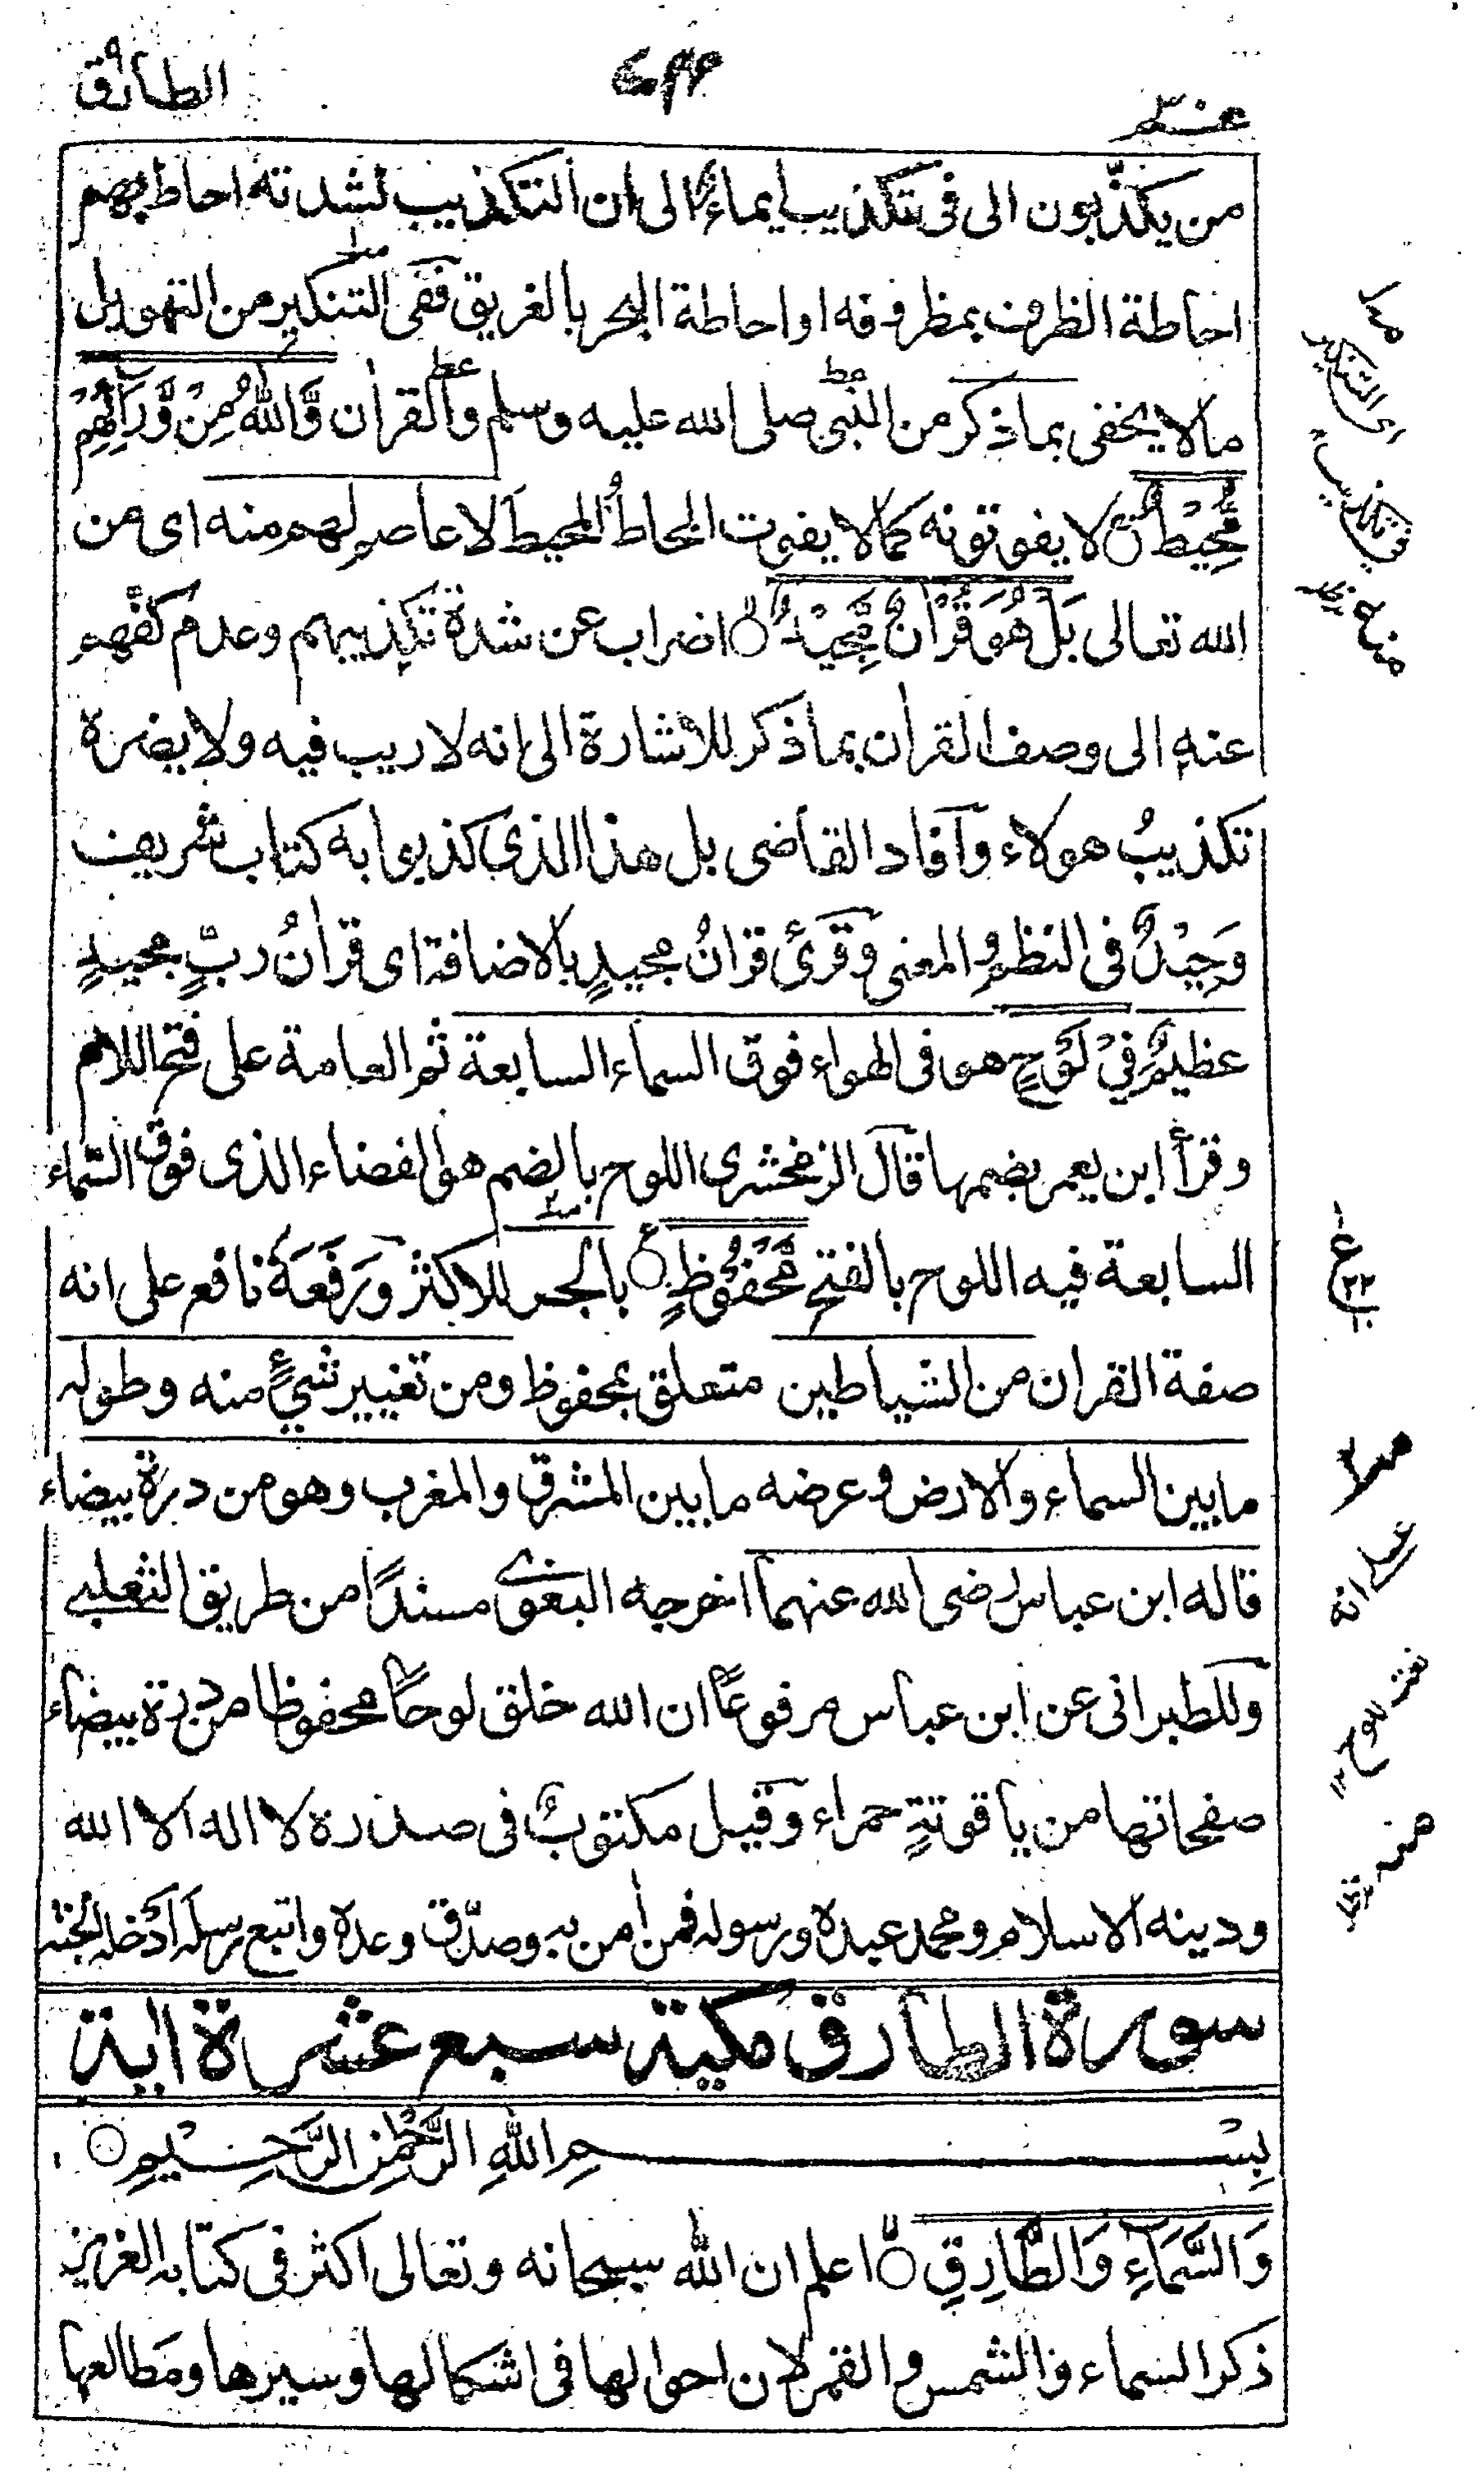 عم
الطارق ٩
من يكذّبون الى فى تكذيب ايماءً الى ان التكذيب لشدته احاط بهم
احاطة الظرف بمظروفه او احاطة البحر بالغريق ففى التنكير من التهويل
مالا يخفى بما ذكر من النبى صلى الله عليه وسلم والقرأن وَّاللّٰهُ مِنْ وَّرَآئِهِمْ
مُّحِيْطٌ لا يفوتونه كما لا يفوت المحاطُ المحيطَ لا عاصم لهم منه اى من
الله تعالى بَلْ هُوَ قُرْاٰنٌ مَّجِيْدٌ اضراب عن شدة تكذيبهم وعدم كفّهم
عنه الى وصف القرأن بما ذكر للاشارة الى انه لا ريب فيه ولا يضره
تكذيبُ هولاء وآفاد القاضى بل هذا الذى كذبوا به كتاب شريف
وَحِيْدٌ فى النظم والمعنى وقرئ قرأنُ مجيدٍ بالاضافة اى قرأنُ ربٍّ مجيدٍ
عظيمٌ فِيْ لَوْحٍ هو فى الهواء فوق السماء السابعة ثم العامة على فتح اللام
وقرأ ابن يعمر بضمها قال الزمخشرى اللوح بالضم هو الفضاء الذى فوق السّماء
السابعة فيه اللوح بالفتح مَّحْفُوْظٍ بالجر للاكثر ورَفَعَهُ نافع على انه
صفة القرأن من الشياطين متعلق بمحفوظ ومن تغيير شيءٍ منه وطوله
مابين السماء والارض وعرضه مابين المشرق والمغرب وهو من درة بيضاء
قاله ابن عباس رضى الله عنهما اخرجه البغوى مسندًا من طريق الثعلبى
وللطبرانى عن ابن عباس مرفوعًا ان الله خلق لوحًا محفوظا من درة بيضاء
صفحاتها من ياقوتةٍ حمراء وقيل مكتوبٌ فى صدره لا اله الا الله
ودينه الاسلام ومحمد عبده ورسوله فمن أمن به وصدّق وعده واتبع رسله ادخله الجنة
سورة الطارق مكية سبع عشرة اية
بِسْمِ اللّٰهِ الرَّحْمٰنِ الرَّحِيْمِ
وَالسَّمَآءِ وَالطَّارِقِ اعلم ان اللّٰه سبحانه وتعالى اكثر فى كتابه العزيز
ذكر السماء والشمس والقمر لان احوالها فى اشكالها وسيرها ومطالعها
اى التنكير
فى تكذيب
ع
٢٢
على انه
نعت للوح ١٢